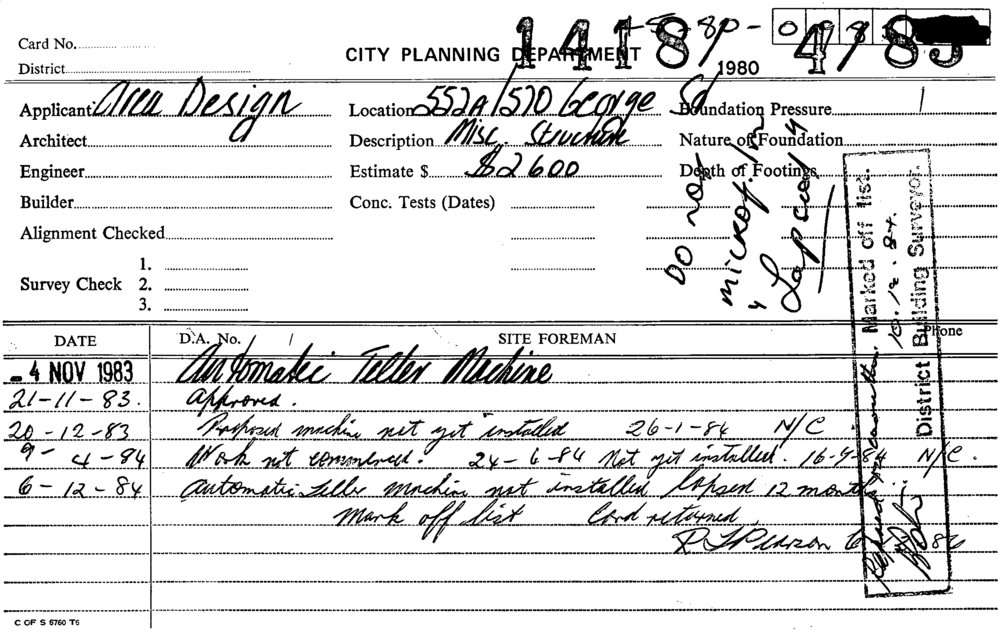 Card No.
CITY PLANNING DEPARTMENT
District
1980
Applicant Area Design
Location 552A/570 George St
Foundation Pressure
Architect
Description Misc. Structure
Nature of Foundation
Engineer
Estimate $ $2600
Depth of Footings
Builder
Conc. Tests (Dates)
Alignment Checked
Survey Check
1.
2.
3.
DO not
microf
Lapsed
DATE
D.A. No.
SITE FOREMAN
Phone
- 4 NOV 1983
Automatic Teller Machine
21-11-83.
Approved.
20-12-83
Proposed machine not yet installed 26-1-84 N/C
9-4-84
Work not commenced. 24-6-84 Not yet installed. 16-9-84 N/C.
6-12-84
Automatic Teller machine not installed lapsed 12 months
Mark off list Card returned
R J Pearson
Marked off list.
10.12.84.
District Building Surveyor.
C OF S 6760 T5